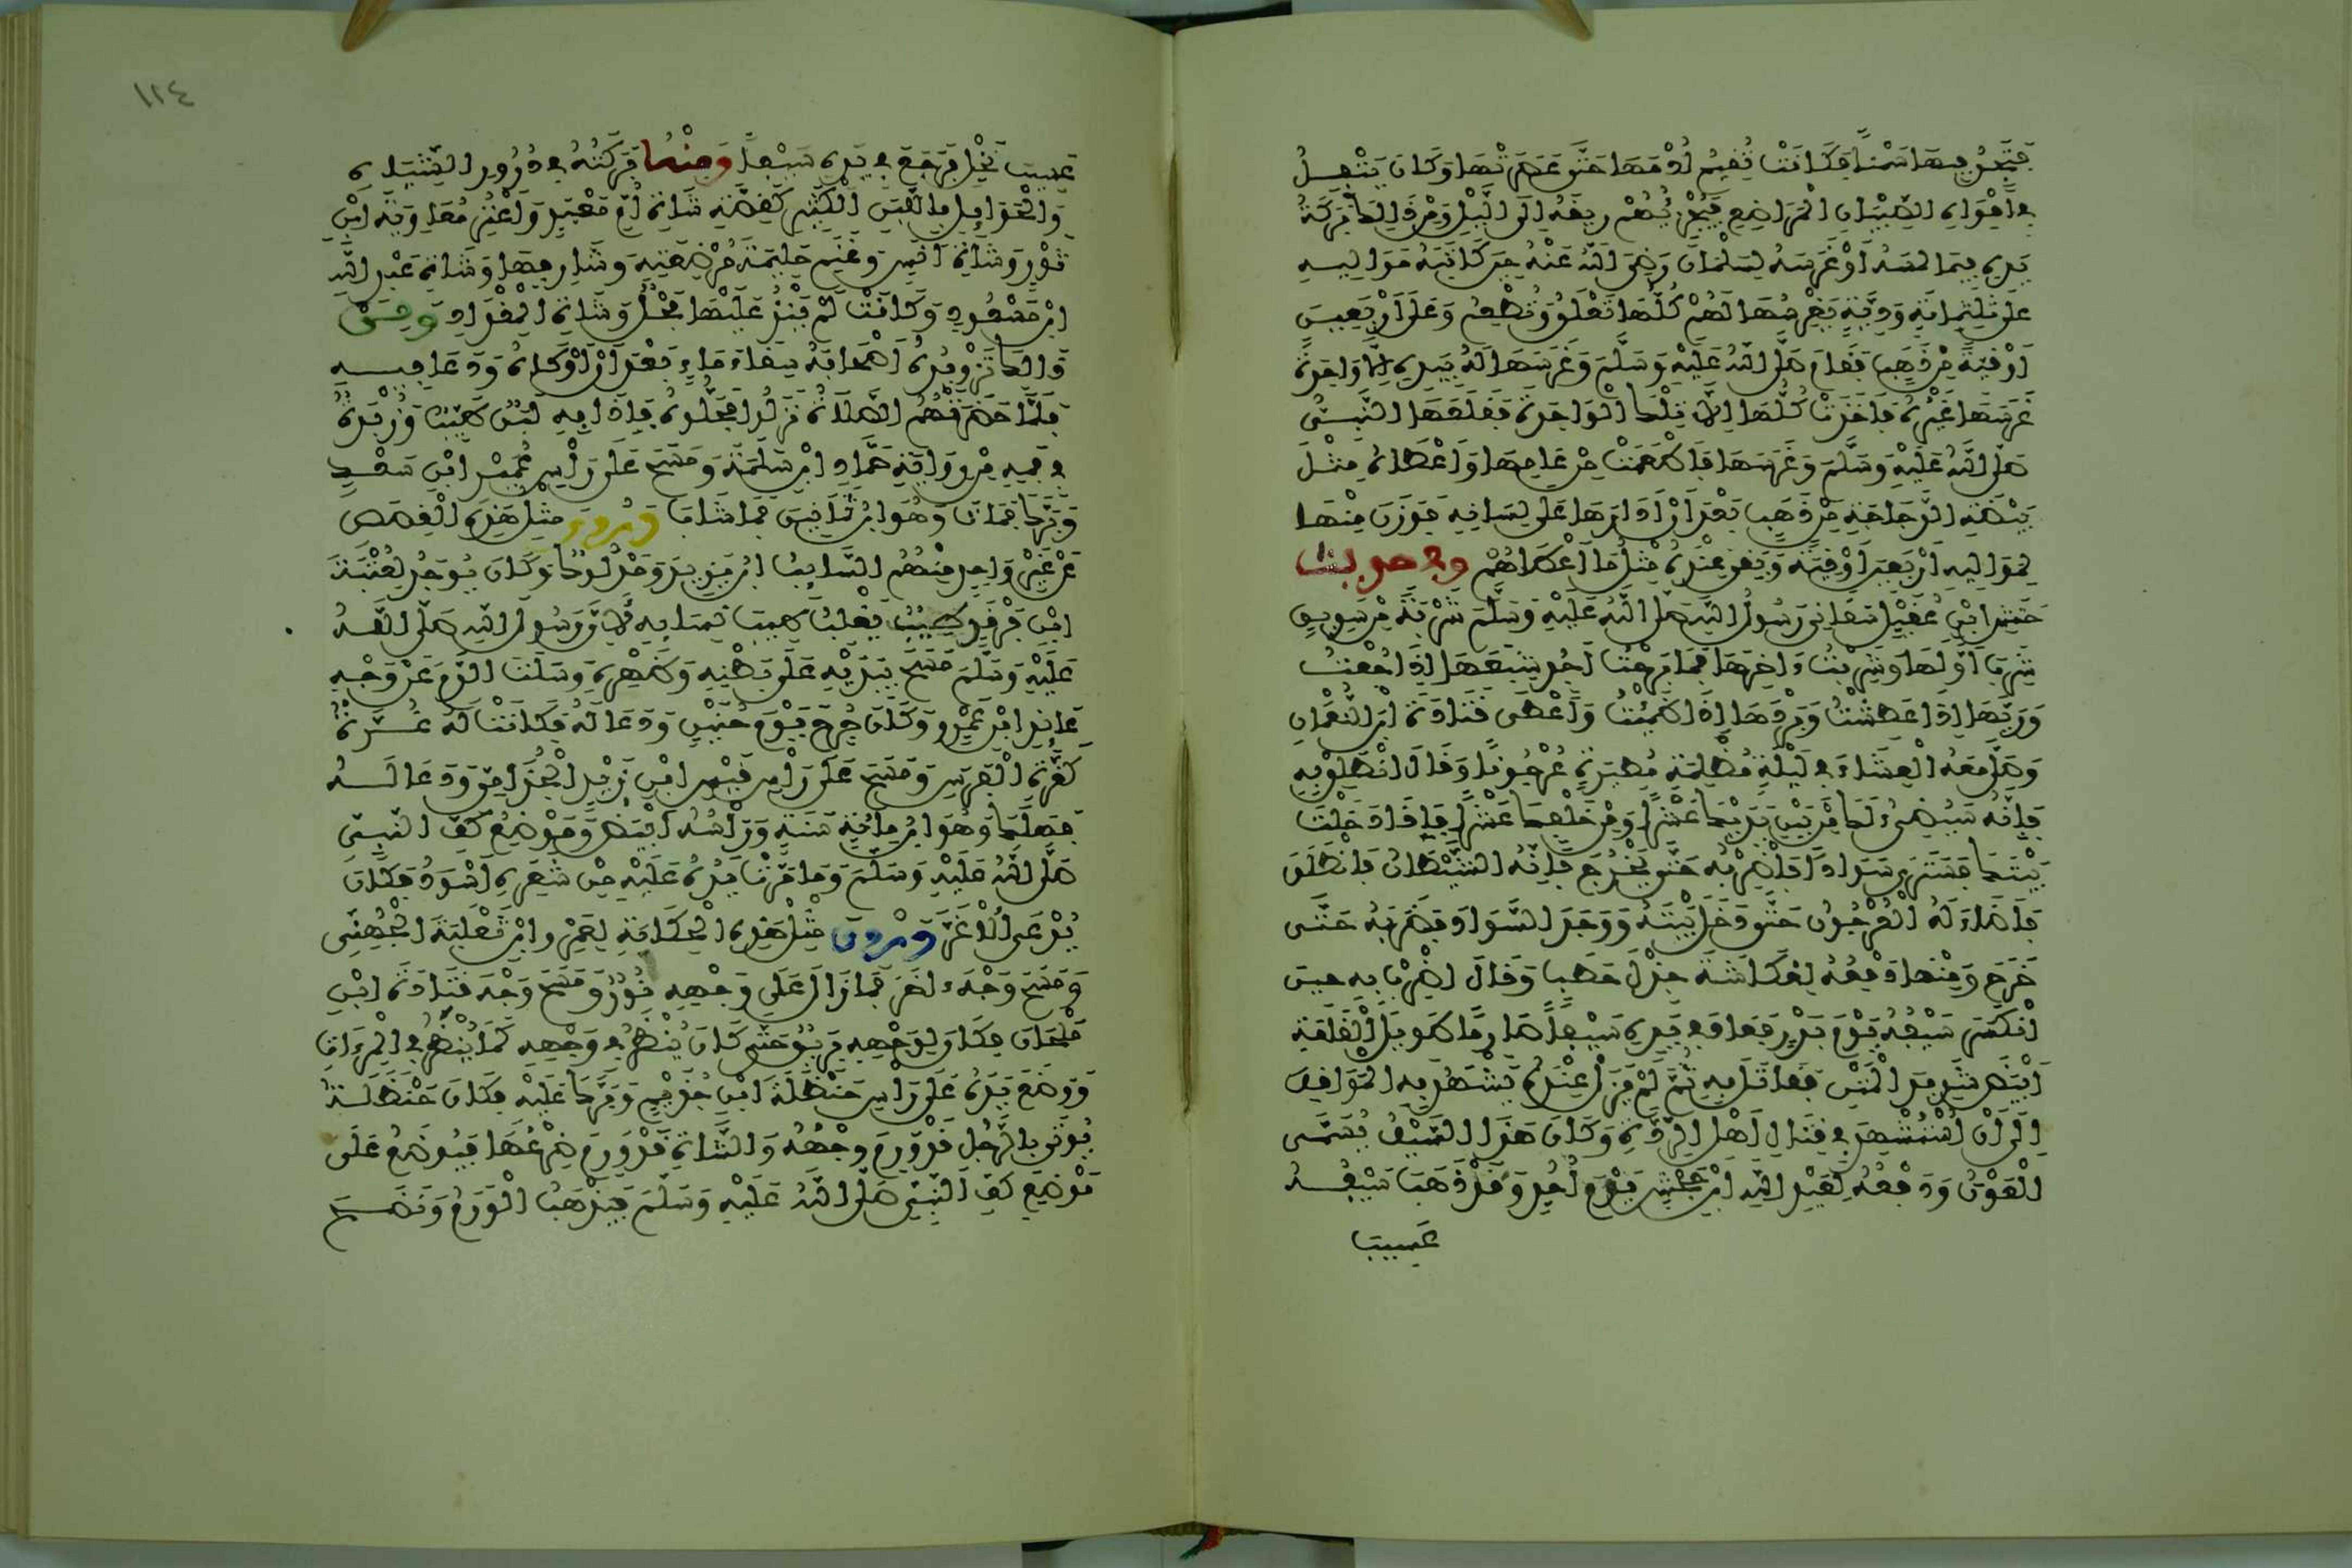 فتجد فيها سمنا فكانت تقيم أدمها حتى عصرتها وكان يتفل
في أفواه الصبيان المراضع فيجزئهم ريقه إلى الليل ومن ذلك بركة
يده فيما لمسه أو غرسه لسلمان رضي الله عنه حين كاتبه مواليه
على ثلثمائة ودية يغرسها لهم كلها تعلق وتطعم وعلى أربعين
أوقية من ذهب فقام صلى الله عليه وسلم وغرسها له بيده إلا واحدة
غرسها غيره فأخذت كلها إلا تلك الواحدة فقلعها النبي
صلى الله عليه وسلم وغرسها فأطعمت من عامها وأعطاه مثل
بيضة الدجاجة من ذهب بعد أن أدارها على لسانه فوزن منها
لمواليه أربعين أوقية وبقي عنده مثل ما أعطاهم وفي حديث
حنش ابن عقيل سقاني رسول الله صلى الله عليه وسلم شربة من سويق
شرب أولها وشربت ءاخرها فما برحت أجد شبعها إذا جعت
وريها إذا عطشت وبردها إذا ظمئت وأعطى قتادة ابن النعمان
وصلى معه العشاء في ليلة مظلمة مطيرة عرجونا وقال انطلق به
فإنه سيضيء لك من بين يديك عشرا ومن خلفك عشرا فإذا دخلت
بيتك فسترى سوادا فاضربه حتى يخرج فإنه الشيطان فانطلق
فأضاء له العرجون حتى دخل بيته ووجد السواد فضربه حتى
خرج ومنها دفعه لعكاشة جزل حطب وقال اضرب به حين
انكسر سيفه يوم بدر فعاد في يده سيفا صارما طويل القامة
أبيض شديد المتن فقاتل به ثم لم يزل عنده يشهد به المواقف
إلى أن استشهد في قتال أهل الردة وكان هذا السيف يسمى
العون ودفعه لعبد الله ابن جحش يوم أحد وقد ذهب سيفه
عسيب
١٢٤
عسيب نخل فرجع في يده سيفا ومنها بركته في درور الشياه
والحوايل باللبن الكثير كقصة شاة أم معبد وأعنز معاوية ابن
ثور وشاة أنس وغنم حليمة مرضعته وشارفها وشاة عبد الله
ابن مسعود وكانت لم ينز عليها فحل وشاة المقداد ومن
ذلك تزويده أصحابه سقاء ماء بعد أن أوكاه ودعا فيه
فلما حضرتهم الصلاة نزلوا فحلوه فإذا به لبن طيب وزبدة
في فمه من رواية حماد ابن سلمة ومسح على رأس عمير ابن سعد
وبرك فمات وهو ابن ثمانين فما شاب وروي مثل هذه القصص
عن غير واحد منهم السايب ابن يزيد ومدلوك وكان يوجد لعتبة
ابن فرقد طيب يغلب طيب نسايه لأن رسول الله صلى الله
عليه وسلم مسح بيديه على بطنه وظهره وسلت الدم عن وجه
عائذ ابن عمرو وكان جرح يوم حنين ودعا له فكانت له غرة
كغرة الفرس ومسح على رأس قيس ابن زيد الجذامي ودعا له
فهلك وهو ابن مائة سنة ورأسه أبيض وموضع كف النبي
صلى الله عليه وسلم وما مرت يده عليه من شعره أسود فكان
يدعى الأغر وروي مثل هذه الحكاية لعمرو ابن ثعلبة الجهني
ومسح وجه ءاخر فما زال على وجهه نور ومسح وجه قتادة ابن
ملحان فكان لوجهه بريق حتى كان ينظر في وجهه كما ينظر في المرءاة
ووضع يده على رأس حنظلة ابن حذيم وبرك عليه فكان حنظلة
يوتى بالرجل قد ورم وجهه والشاة قد ورم ضرعها فيوضع على
موضع كف النبي صلى الله عليه وسلم فيذهب الورم ونضح